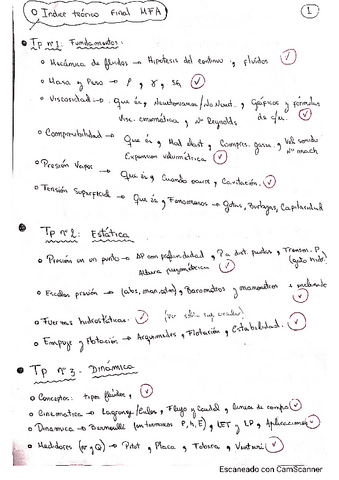 Indice teórico Final MFA
1
Tp nº1: Fundamentos:
Mecánica de fluidos → Hipotesis del continuo, fluidos
Masa y Peso → ρ, γ, SG
Viscosidad → Que és, Newtonianos/No Newt., Gráficos y fórmulas de c/u.
Visc. cinemática, nº Reynolds
Compresibilidad → Que és, Mod elast, Compres. gases, Vel sonido
Expansion volumétrica nº mach
Presión Vapor → Que és, Cuando ocurre, Cavitación.
Tensión Superficial → Que és, Fenomenos → Gotas, Burbujas, Capilaridad
Tp nº2: Estática
Presión en un punto → ΔP con profundidad, P a dist. puntos, Transm. P
Altura piezométrica (gato hidr.)
Escalas presión → (abs, man, atm), Barometros y manometros
Fuerzas hidrostáticas.
Empuje y Flotación → Arquimedes, Flotación, Estabilidad.
Tp nº3 - Dinámica
Conceptos: tipos fluidos,
Cinematica → Lagrange/Euler, Flujo y Caudal, lineas de campo
Dinamica → Bernoulli (en terminos P, h, E), LET y LP, Aplicaciones
Medidores (v y Q) → Pitot, Placa, Tobera, Venturi
Escaneado con CamScanner